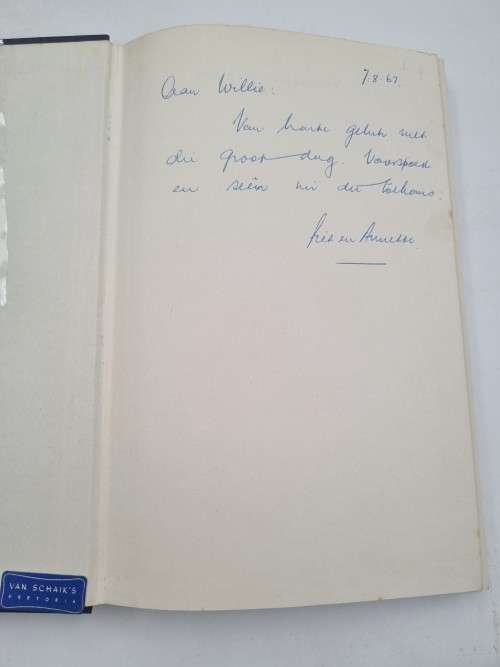 7.8.67.
Aan Willie:
Van harte geluk met
die groot dag. Voorspoed
en seën in die toekoms.
Piet en Annette.
VAN SCHAIK'S
PRETORIA